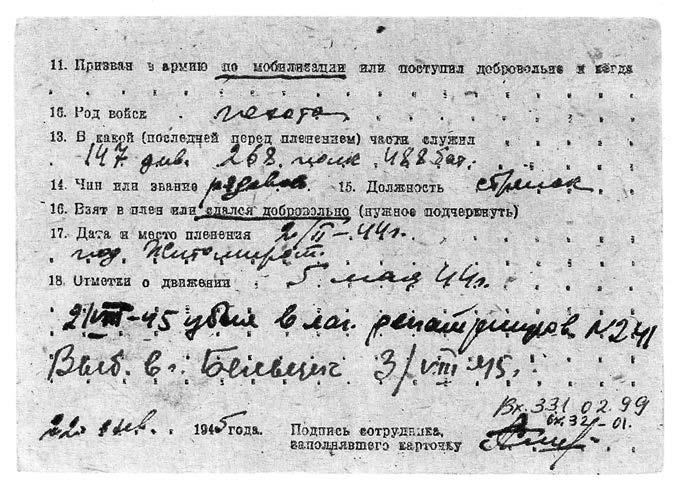 11. Призван в армию по мобилизации или поступил добровольно и когда
16. Род войск пехота
13. В какой (последней перед пленением) части служил
147 див. 268 полк 488 бат.
14. Чин или звание рядовой 15. Должность стрелок
16. Взят в плен или сдался добровольно (нужное подчеркнуть)
17. Дата и место пленения 2/II-44г.
под Житомиром.
18. Отметки о движении 5 мая 44г.
2/VIII-45 убыл в лаг. N241
Выб. в г. Бельцы 3/VIII 45г.
Вх.331 02.99
вх.32 -01.
22 янв. 1945 года. Подпись сотрудника,
заполнявшего карточку